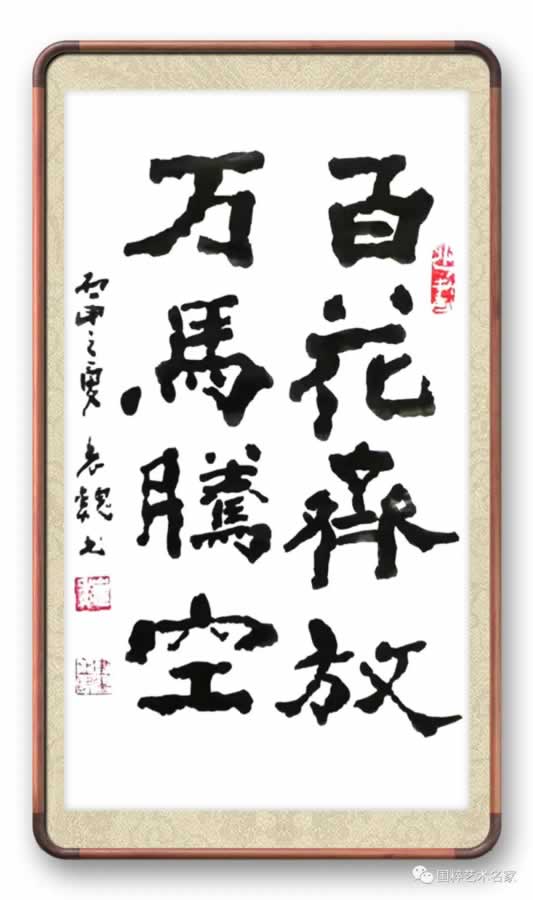 百花齊放
万馬騰空
之夏
書
国粹艺术名家